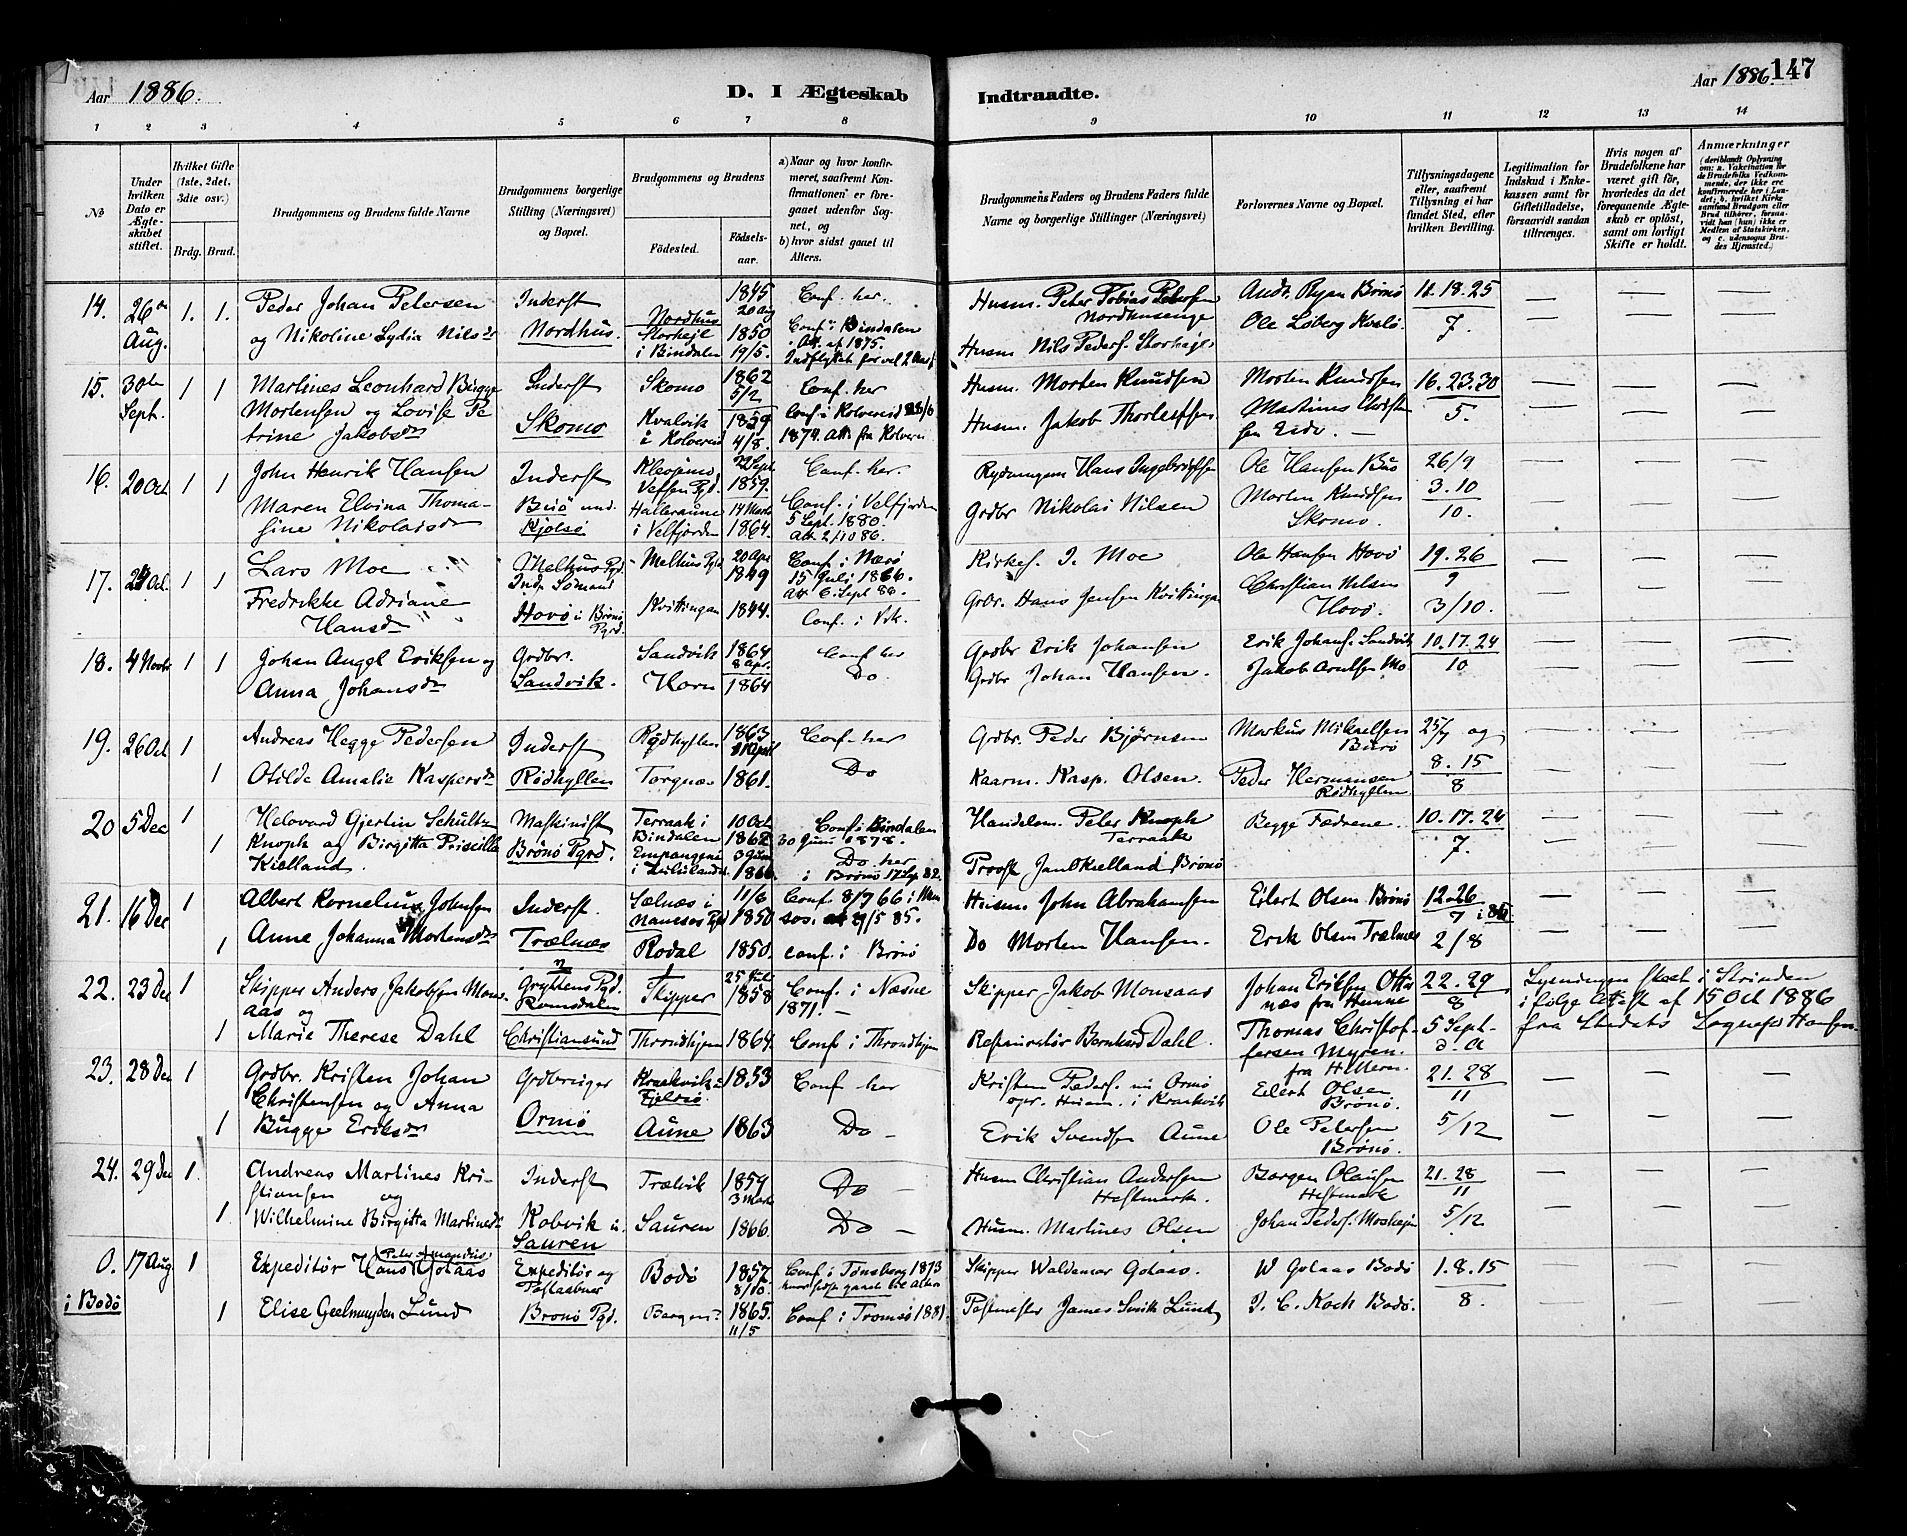 Aar 1886.
D. I Ægteskab
Indtraadte.
Aar 1886. 147
1 2 3 4 5 6 7 8 9 10 11 12 13 14
No
Under hvilken Dato er Ægteskabet stiftet.
Hvilket Gifte (1ste, 2det, 3die osv.)
Brdg. Brud.
Brudgommens og Brudens fulde Navne
Brudgommens borgerlige Stilling (Næringsvei) og Bopæl.
Brudgommens og Brudens
Fødested.
Fødselsaar.
a) Naar og hvor konfirmeret, saafremt Konfirmationen er foregaaet udenfor Sognet, og
b) hvor sidst gaaet til Alters.
Brudgommens Faders og Brudens Faders fulde Navne og borgerlige Stillinger (Næringsvei)
Forlovernes Navne og Bopæl.
Tillysningsdagene eller, saafremt Tillysning ei har fundet Sted, efter hvilken Bevilling.
Legitimation for Indskud i Enkekassen samt for Giftetilladelse, forsaavidt saadan tiltrænges.
Hvis nogen af Brudefolkene har været gift før, hvorledes da det foregaaende Ægteskab er opløst, samt om lovligt Skifte er holdt.
Anmærkninger
14. 26de Aug. 1. 1. Peder Johan Petersen
og Nikoline Lydia Nilsdr
Inderst
Nordhus.
Nordhus
Storheje
i Bindalen
1845
20 Aug
1850
19/5.
Conf. her.
Conf. i Bindalen
Att. af 1875.
Husm. Peter Tobias Petersen
Nordhusenge
Husm. Nils Peders. Storheje
Andr. Ryan Brønø
Ole Løberg
11.18.25
7.
15. 30te Sept. 1 1 Martines Leonhard Bugge
Mortensen og Lovise Petrine Jakobsdr
Inderst
Skomo
Skomo
Kvalvik
i Kolvereid
1862
5/2
1859
4/8.
Conf. her
Conf. i Kolvereid
1874. Att. fra Kolvereid
Husm. Morten Knudsen
Husm. Jakob Thorleifsen
Morten Knudsen
Martinus Christensen Eide.
16.23.30
5.
16. 20 Oct 1 1 John Henrik Hansen
Maren Elvina Thomasine Nikolaisdr
Inderst
Buø und.
Kjølsø
Vefsen Pgd.
i Velfjorden
22 Sept
1859.
14 Marts
1864.
Conf. her.
Conf. i Velfjorden
5 Sept. 1880.
Att. 2/10 86.
Rydningsm Hans Ingebrigtsen
Grdbr Nikolai Nilsen
Ole Hansen Buø
Morten Knudsen
Skomo.
26/9
3.10
10.
17. Oct. 1 1 Lars Moe
Fredrikke Adriane
Hansdr
Melhus Pgd.
Ind. Sømand
Hovø i Brønø
Pgrd
Melhus Pgd
Kvittingen
20 Apr
1849
1844.
Conf. i Nærø
15 Juli 1866.
Att. 6. Sept 86.
Conf. i Vik.
Kirkes. I. Moe
Grdr. Hans Jensen Kvittingen
Ole Hansen Hovø
Christian Nilsen
Hovø.
19.26
9
3/10.
18. 4 Novbr 1 1 Johan Angel Eriksen og
Anna Johansdr
Grdbr.
Sandvik.
Sandvik
Horn
1864
8 Apr.
1864
Conf. her
Do.
Grdbr Erik Johansen
Grdbr Johan Hansen.
Erik Johans. Sandvik
Jakob Arntsen Mo
10.17.24
10
19. 26 Oct 1
1
Andreas Hegge Pedersen
Otilde Amalie Kaspersdr
Inderst
Rødhyllen
Rødhyllen
Torgnæs
1863
April
1861.
Conf. her
Do
Grdbr. Peder Bjørnsen
Kaarm. Kasp. Olsen.
Markus Mikaelsen
Burø
Peder Hermansen
Rødhyllen
25/7 og
8.15
8
20 5 Dec 1
1
Helovard Gjertin Schultz
Knoph og Birgitta Priscilla
Kielland.
Maskinist
Brønø Pgrd.
Terraak i
Bindalen
Empangeni
i Zululandet
10 Oct
1862
3 Juni
1866.
Conf. i Bindalen
30 Juni 1878.
Do her
i Brønø 17 Sep. 82.
Handelsm. Peter Knoph
Terraak
Provst Jan Kielland Brønø
Begge Fædrene.
10.17.24
7.
21. 16 Dec 1
1
Albert Kornelius Johnsen
Anne Johanna Mortensdr
Inderst.
Trælnæs
Sælnæs i
Namsos Pgd
Rodal
11/6
1850
1850.
Conf. 8/7 66 i Namsos. 85.
conf. i Brønø
Husm. John Abrahamsen
Do Morten Hansen.
Eilert Olsen Brønø
Erik Olsen Trælnæs
12.26
7 i 85
2/8
22. 23 Dec 1
1
Skipper Anders Jakobsen Monsaas og
Marie Therese Dahl
Gryttens Pgd.
Romsdalen
Christiansund
Skipper
Throndhjem
25 Juli
1858
1864.
Conf. i Næsne
1871.
Conf. i Throndhjem
Skipper Jakob Monsaas
Restauratør Bernhard Dahl.
Johan Eriksen Otternæs fra
Thomas Christoffersen Myren.
fra Hitteren.
22.29
8
5 Sept.
d. A
Lysningen skeet i Strinden
i følge Attest af 15 Oct 1886
fra Stedets Sognepr Hansen
23. 28 Dec 1
1
Grdbr. Kristen Johan
Christensen og Anna
Bugge Eriksdr
Grdbruger
Ormø
Kraakvik i
Aune
1853
1863
Conf her
Do
Kristen Peders. i Ormø
opr. Husm. i Kraakvik
Erik Svendsen Aune
Eilert Olsen
Brønø.
Ole Petersen
Brønø.
21.28
11
5/12
24. 29 Dec 1.
1.
Andreas Martines Kristiansen og
Wilhelmine Birgitta Martinesdr
Inderst
Kobvik u.
Sauren
Trælvik
Sauren
1859
3 Mars
1866.
Do
Do
Husm Christian Andersen
Hestmark.
Husm. Martines Olsen
Borgen Olausen
Hestmark
Johan Peders.
21.28
11
5/12
0. 17 Aug 1
i Bodø
1
Expeditør Hans (Peter Amandus) Golaas
Elise Geelmuyden Lund
Expeditør og
Postaabner
Brønø Pgd.
Bodø
Bergen?
1857
8/10.
1865.
11/5
Conf. i Tønsberg 1873
hvor sidst gaaet til Alter
Conf i Tromsø 1881.
Skipper Waldemar Golaas.
Postmester James Smith Lund
W Golaas Bodø
J. C. Koch Bodø.
1.8.15
8.